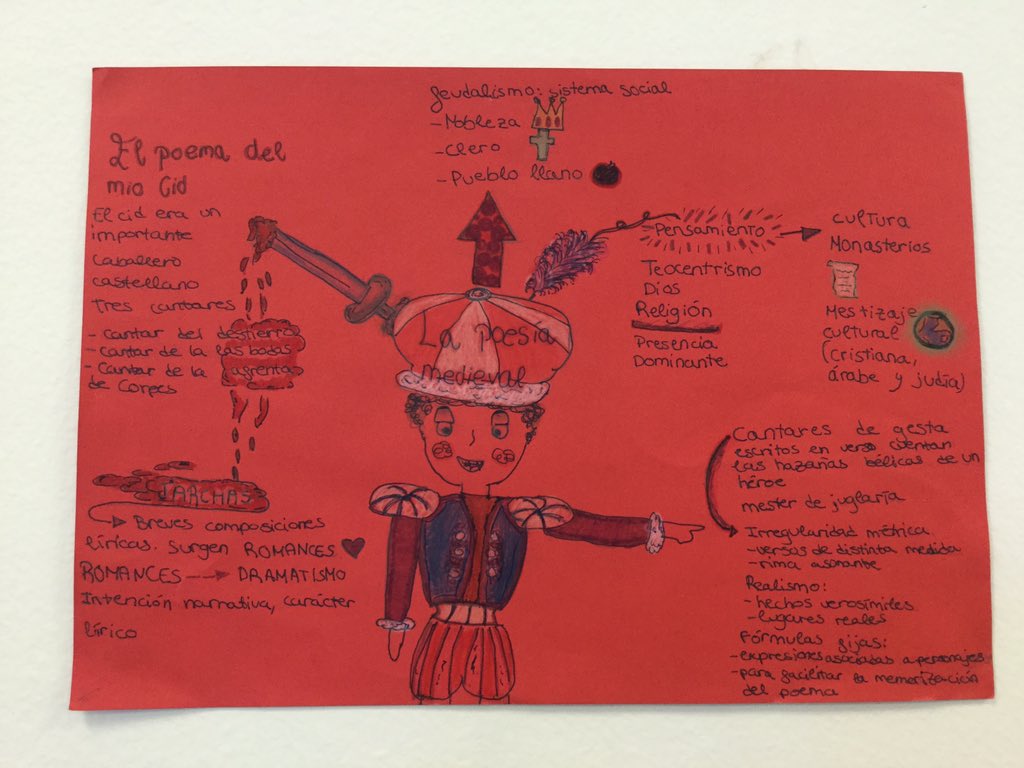 feudalismo: sistema social
- Nobleza
- Clero
- Pueblo llano
El poema del
mio Cid
El cid era un
importante
caballero
castellano
Tres cantares
- Cantar del destierro
- Cantar de la las bodas
- Cantar de la afrenta
de Corpes
JARCHAS
Breves composiciones
líricas. Surgen ROMANCES
ROMANCES → DRAMATISMO
Intención narrativa, carácter
lírico
La poesía
medieval
Pensamiento →
Teocentrismo
Dios
Religión
Presencia
Dominante
Cultura
Monasterios
Mestizaje
cultural
(cristiana,
árabe y judía)
Cantares de gesta
escritos en verso cuentan
las hazañas bélicas de un
héroe
mester de juglaría
Irregularidad métrica
- versos de distinta medida
- rima asonante
Realismo:
- hechos verosímiles
- lugares reales
Fórmulas fijas:
- expresiones asociadas a personajes
- para facilitar la memorización
del poema